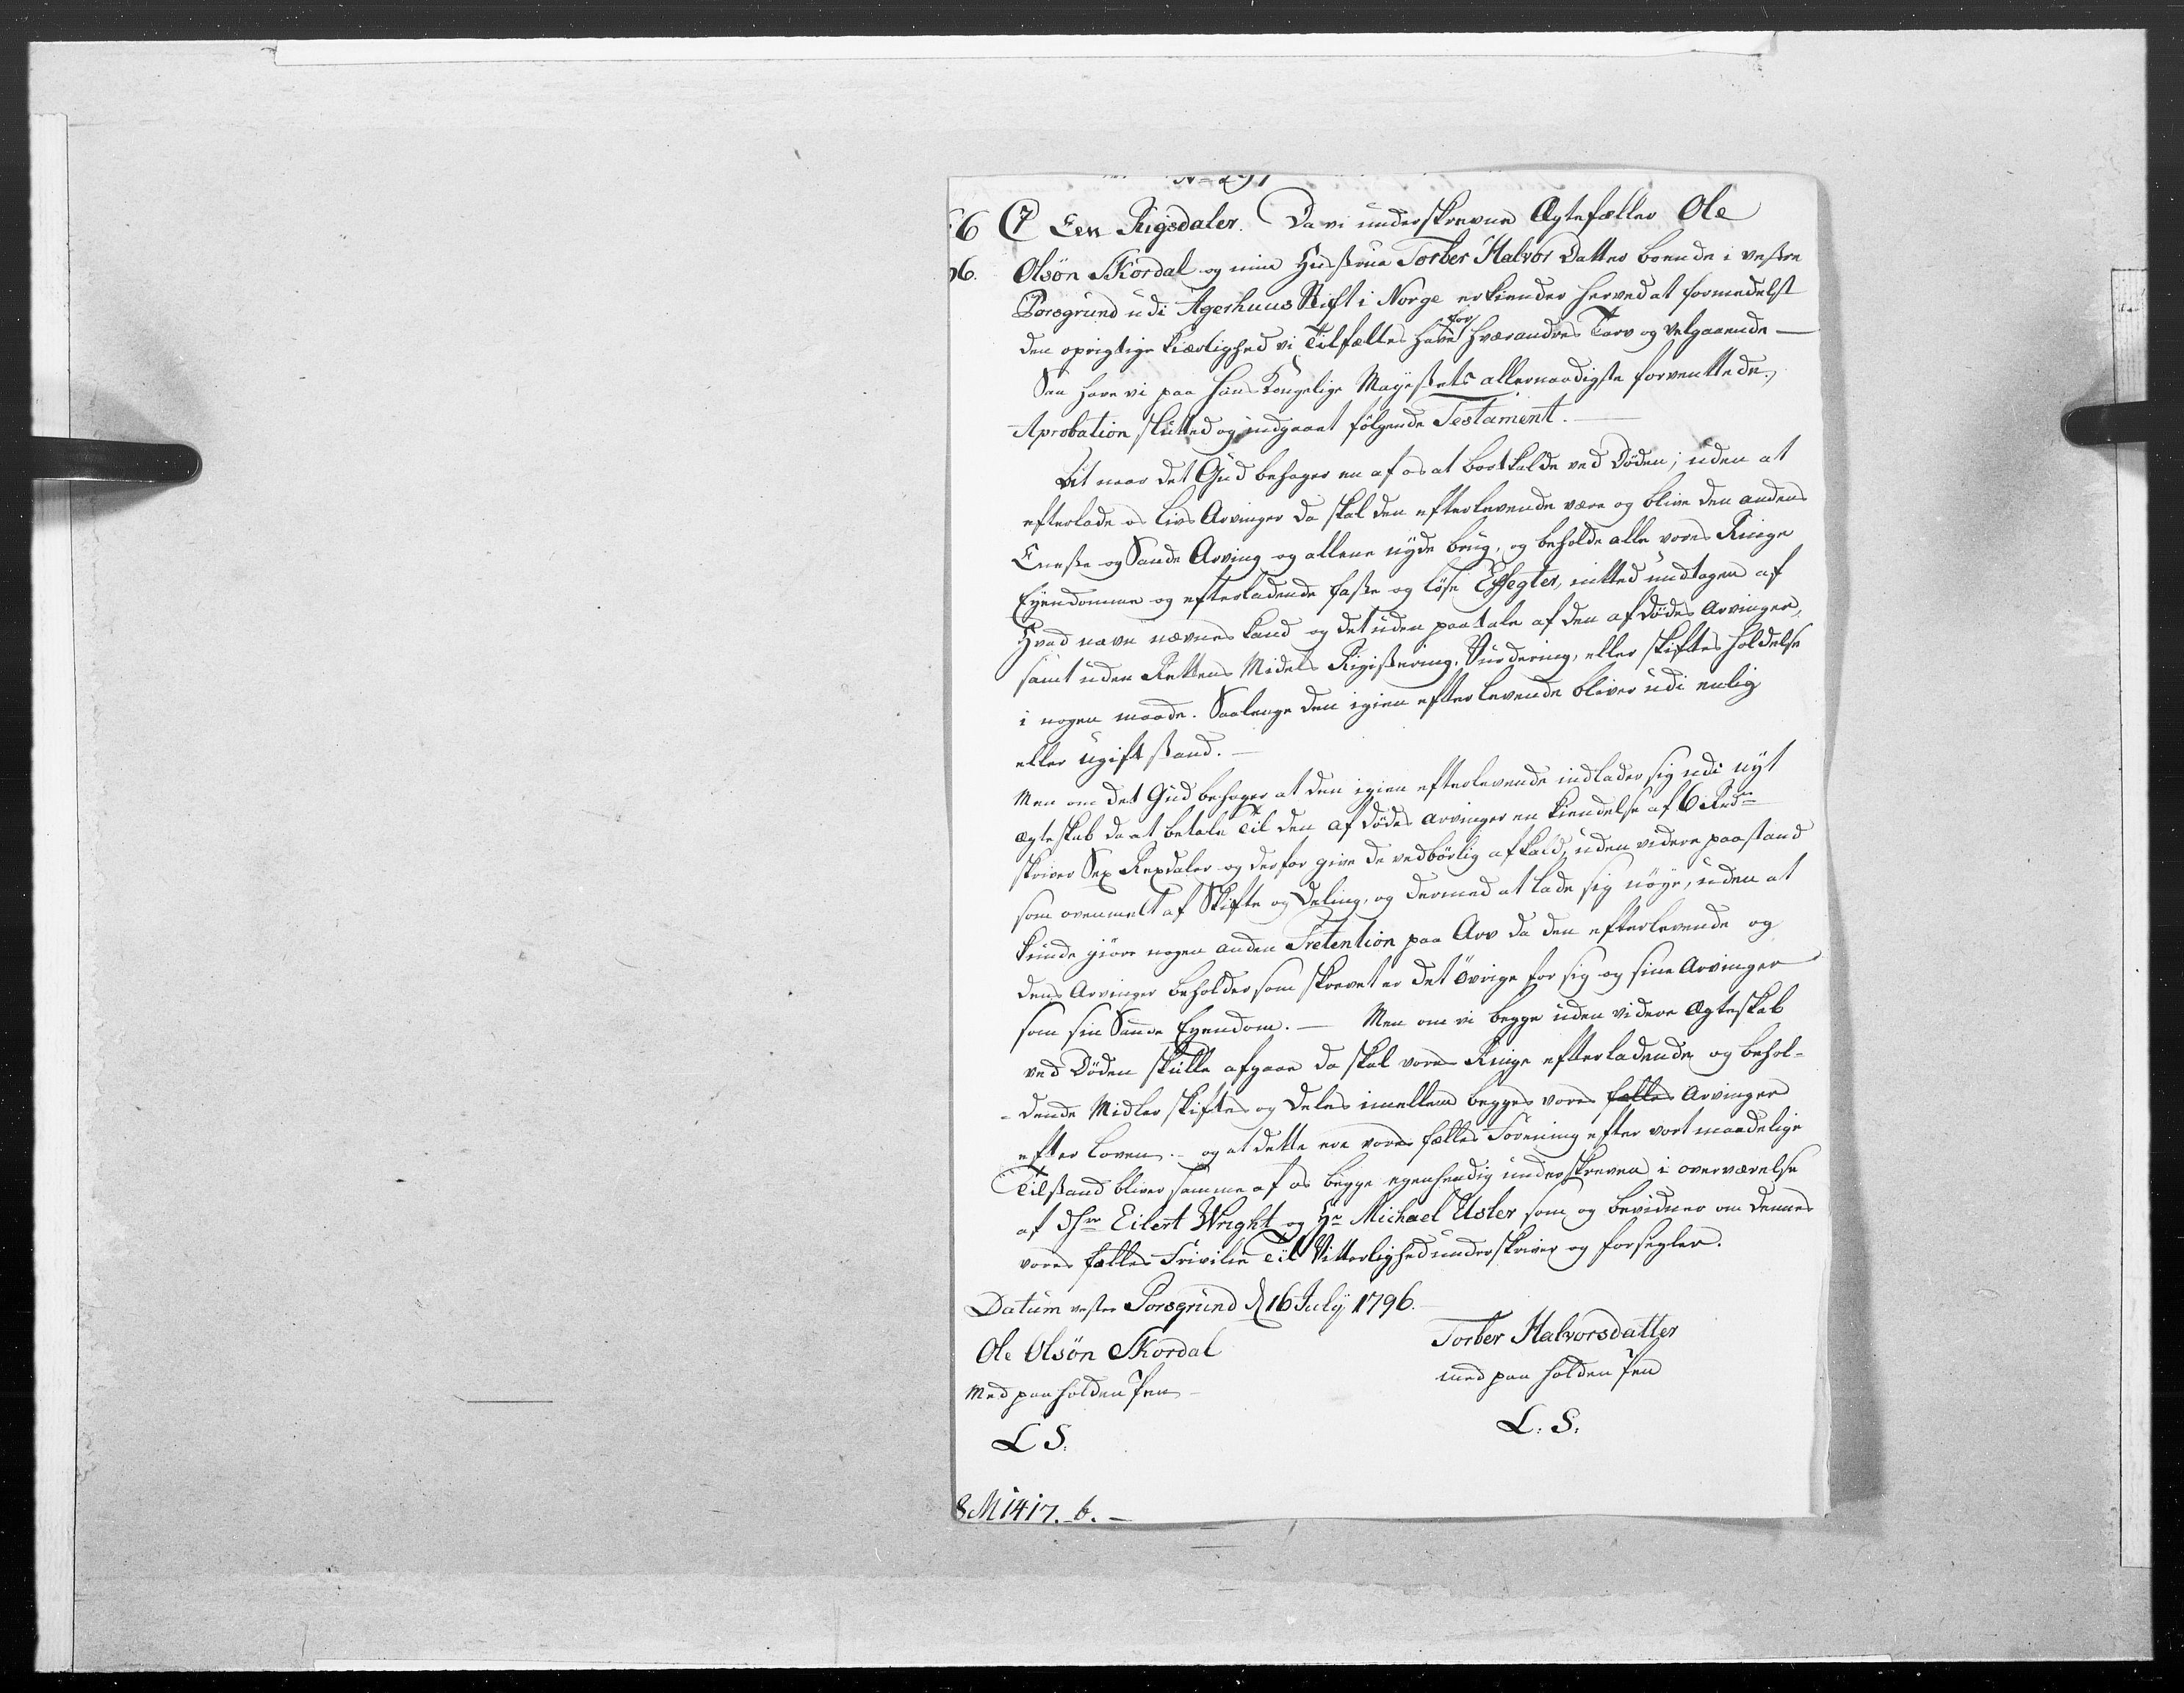 No 291
66 C7 Een Rigsdaler. Da vi underskrevne Ægtefæller Ole
96. Olsön Skordal og min Hustrue Torber Halvor Datter boende i vestre
Porsgrund udi Agerhuus Stift i Norge erkiender herved at formedelst
den oprigtige Kiærlighed vi Tilfælles have for hverandres Tarv og Velgaaende —
Saa have vi paa Hans Kongelige Mayestets allernaadigste forventtede
Aprobation slutted og indgaaet følgende Testament. —
At naar det Gud behager en af os at bortkalde ved Døden; uden at
efterlade os Livs Arvinger da skal den efterlevende være og blive den andens
Eneste og Sande Arving og allene nyde brug, og beholde alle vores Ringe
Eyendomme og efterladende faste og løse Effegter, intted undtagen af
Hvad navn nævnes kand og det uden paatale af den afdødes Arvinger,
samt uden Rettens Midels Rigistering, Vurdering, eller skiftes holdelse
i nogen maade. Saalenge den igien efterlevende bliver udi enlig
eller ugift stand. —
Men om det Gud behager at den igien efterlevende indlader sig udi nyt
Ægteskab da at betale Til den afdødes arvinger en kiendelse af 6 Rdr
skriver Sex Rixdaler og derfor give de vedbörlig afkald, uden videre paastand
som ovenmelt af Skifte og Deling, og dermed at lade sig nöye, uden at
kunde giøre nogen anden Pretention paa Arv da den efterlevende og
dens Arvinger beholder som skrevet er det Övrige for sig og sine Arvinger
som sin Sande Eyendom. — Men om vi begge uden videre Ægteskab
ved Döden skulle afgaae da skal vores Ringe efterladende og behol-
- dende Midler skiftes og deles imellem begges vores fælles Arvinger
efter Loven. — og at dette ere vores fælles Forening efter vort maadelige
Tilstand bliver samme af os begge egenhendig underskreven i overværelse
af dHrr Eilert Wright og Hr Michael Usler som og bevidner om dennes
vores fælles Frivilie Til Vitterlighed underskriver og forsegler.
Datum vester Porsgrund d 16 July 1796.
Ole Olsön Skordal
Torber Halvorsdatter
Med paaholden Pen —
med paa holden Pen
L S.
L. S.
8 M 1417. b. —